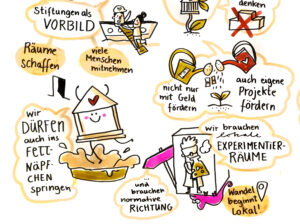 Stiftungen als
VORBILD
denken
Räume
schaffen
viele
Menschen
mitnehmen
nicht nur
mit Geld
fördern
auch eigene
Projekte
fördern
wir
DÜRFEN
auch ins
FETT-
NÄPF-
CHEN
springen
wir brauchen
EXPERIMENTIER-
RÄUME
und
brauchen
normative
RICHTUNG
Wandel
beginnt
lokal!